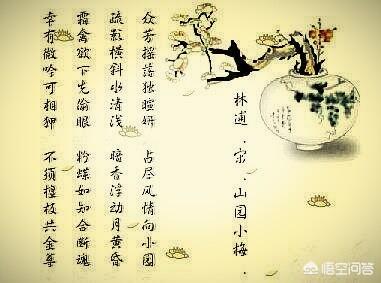 林逋．宋．山园小梅．
众芳摇落独暄妍 占尽风情向小园
疏影横斜水清浅 暗香浮动月黄昏
霜禽欲下先偷眼 粉蝶如知合断魂
幸有微吟可相狎 不须檀板共金尊
悟空问答